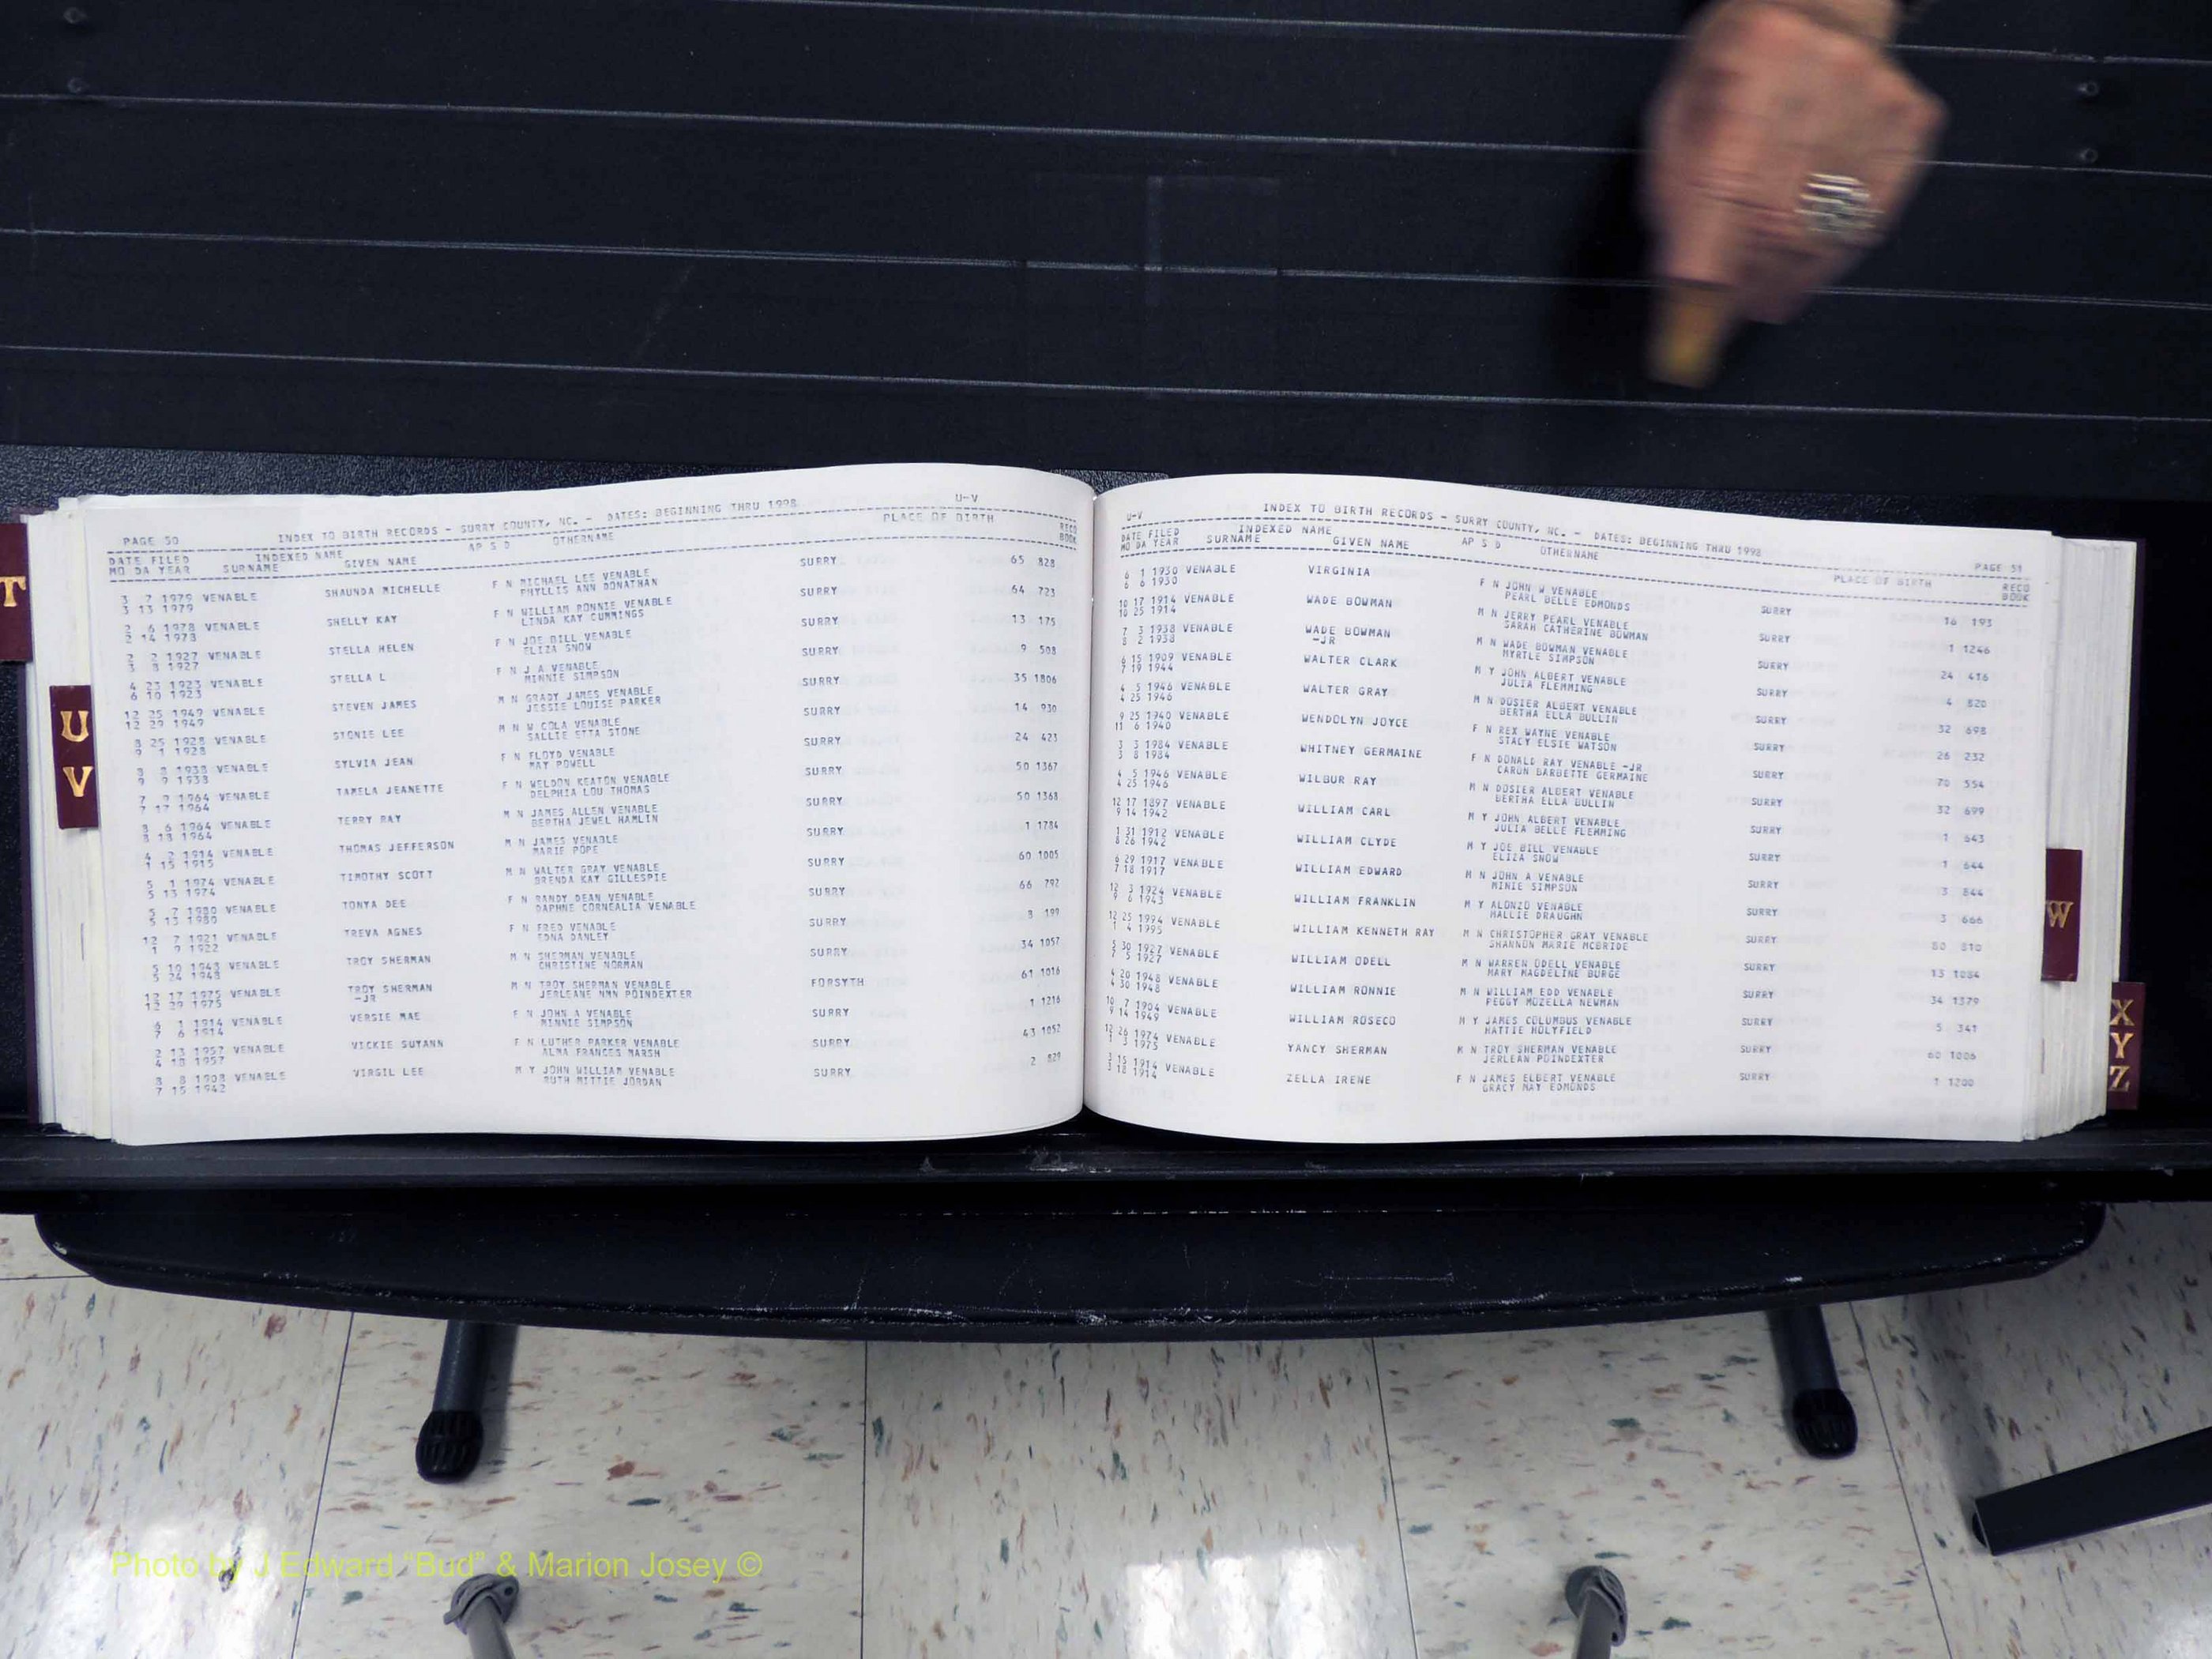 T
U
V
W
X
Y
Z
PAGE 50 INDEX TO BIRTH RECORDS - SURRY COUNTY, NC. - DATES: BEGINNING THRU 1998 U-V
DATE FILED INDEXED NAME AP S D OTHERNAME PLACE OF BIRTH RECO
MO DA YEAR SURNAME GIVEN NAME BOOK
3 7 1979 VENABLE SHAUNDA MICHELLE F N MICHAEL LEE VENABLE SURRY 65 828
3 13 1979 PHYLLIS ANN DONATHAN
2 6 1978 VENABLE SHELLY KAY F N WILLIAM RONNIE VENABLE SURRY 64 723
2 14 1978 LINDA KAY CUMMINGS
2 2 1927 VENABLE STELLA HELEN F N JOE BILL VENABLE SURRY 13 175
3 8 1927 ELIZA SNOW
4 23 1923 VENABLE STELLA L F N J A VENABLE SURRY 9 508
6 10 1923 MINNIE SIMPSON
12 25 1949 VENABLE STEVEN JAMES M N GRADY JAMES VENABLE SURRY 35 1806
12 29 1949 JESSIE LOUISE PARKER
8 25 1928 VENABLE STONIE LEE M N W COLA VENABLE SURRY 14 930
9 1 1928 SALLIE ETTA STONE
8 8 1938 VENABLE SYLVIA JEAN F N FLOYD VENABLE SURRY 24 423
9 9 1938 MAY POWELL
7 9 1964 VENABLE TAMELA JEANETTE F N WELDON KEATON VENABLE SURRY 50 1367
7 17 1964 DELPHIA LOU THOMAS
8 6 1964 VENABLE TERRY RAY M N JAMES ALLEN VENABLE SURRY 50 1368
8 18 1964 BERTHA JEWEL HAMLIN
4 2 1914 VENABLE THOMAS JEFFERSON M N JAMES VENABLE SURRY 1 1784
1 15 1915 MARIE POPE
5 1 1974 VENABLE TIMOTHY SCOTT M N WALTER GRAY VENABLE SURRY 60 1005
5 13 1974 BRENDA KAY GILLESPIE
5 7 1980 VENABLE TONYA DEE F N RANDY DEAN VENABLE SURRY 66 792
5 13 1980 DAPHNE CORNEALIA VENABLE
12 7 1921 VENABLE TREVA AGNES F N FRED VENABLE SURRY 8 199
1 9 1922 EDNA DANLEY
5 10 1948 VENABLE TROY SHERMAN M N SHERMAN VENABLE SURRY 34 1057
5 24 1948 CHRISTINE NORMAN
12 17 1975 VENABLE TROY SHERMAN M N TROY SHERMAN VENABLE FORSYTH 61 1016
12 29 1975 -JR JERLEANE NMN POINDEXTER
6 1 1914 VENABLE VERSIE MAE F N JOHN A VENABLE SURRY 1 1216
7 6 1914 MINNIE SIMPSON
2 13 1957 VENABLE VICKIE SUYANN F N LUTHER PARKER VENABLE SURRY 43 1052
4 18 1957 ALMA FRANCES MARSH
8 8 1908 VENABLE VIRGIL LEE M Y JOHN WILLIAM VENABLE SURRY 2 829
7 15 1942 RUTH MITTIE JORDAN
U-V INDEX TO BIRTH RECORDS - SURRY COUNTY, NC. - DATES: BEGINNING THRU 1998 PAGE 51
DATE FILED INDEXED NAME AP S D OTHERNAME PLACE OF BIRTH RECO
MO DA YEAR SURNAME GIVEN NAME BOOK
6 1 1930 VENABLE VIRGINIA F N JOHN W VENABLE SURRY 16 193
6 6 1930 PEARL BELLE EDMONDS
10 17 1914 VENABLE WADE BOWMAN M N JERRY PEARL VENABLE SURRY 1 1246
10 25 1914 SARAH CATHERINE BOWMAN
7 3 1938 VENABLE WADE BOWMAN M N WADE BOWMAN VENABLE SURRY 24 416
8 2 1938 -JR MYRTLE SIMPSON
6 15 1909 VENABLE WALTER CLARK M Y JOHN ALBERT VENABLE SURRY 4 820
7 19 1944 JULIA FLEMMING
4 5 1946 VENABLE WALTER GRAY M N DOSIER ALBERT VENABLE SURRY 32 698
4 25 1946 BERTHA ELLA BULLIN
9 25 1940 VENABLE WENDOLYN JOYCE F N REX WAYNE VENABLE SURRY 26 232
11 6 1940 STACY ELSIE WATSON
3 3 1984 VENABLE WHITNEY GERMAINE F N DONALD RAY VENABLE -JR SURRY 70 554
3 8 1984 CARON BARBETTE GERMAINE
4 5 1946 VENABLE WILBUR RAY M N DOSIER ALBERT VENABLE SURRY 32 699
4 25 1946 BERTHA ELLA BULLIN
12 17 1897 VENABLE WILLIAM CARL M Y JOHN ALBERT VENABLE SURRY 1 643
9 14 1942 JULIA BELLE FLEMMING
1 31 1912 VENABLE WILLIAM CLYDE M Y JOE BILL VENABLE SURRY 1 644
8 26 1942 ELIZA SNOW
6 29 1917 VENABLE WILLIAM EDWARD M N JOHN A VENABLE SURRY 3 844
7 18 1917 MINIE SIMPSON
12 3 1924 VENABLE WILLIAM FRANKLIN M Y ALONZO VENABLE SURRY 3 666
9 6 1943 HALLIE DRAUGHN
12 25 1994 VENABLE WILLIAM KENNETH RAY M N CHRISTOPHER GRAY VENABLE SURRY 80 810
1 4 1995 SHANNON MARIE MCBRIDE
5 30 1927 VENABLE WILLIAM ODELL M N WARREN ODELL VENABLE SURRY 13 1084
7 5 1927 MARY MAGDELINE BURGE
4 20 1948 VENABLE WILLIAM RONNIE M N WILLIAM EDD VENABLE SURRY 34 1379
4 30 1948 PEGGY MOZELLA NEWMAN
10 7 1904 VENABLE WILLIAM ROSECO M Y JAMES COLUMBUS VENABLE SURRY 5 341
9 14 1949 HATTIE HOLYFIELD
12 26 1974 VENABLE YANCY SHERMAN M N TROY SHERMAN VENABLE SURRY 60 1006
1 3 1975 JERLEAN POINDEXTER
3 15 1914 VENABLE ZELLA IRENE F N JAMES ELBERT VENABLE SURRY 1 1200
3 18 1914 GRACY MAY EDMONDS
Photo by J Edward "Bud" & Marion Josey ©